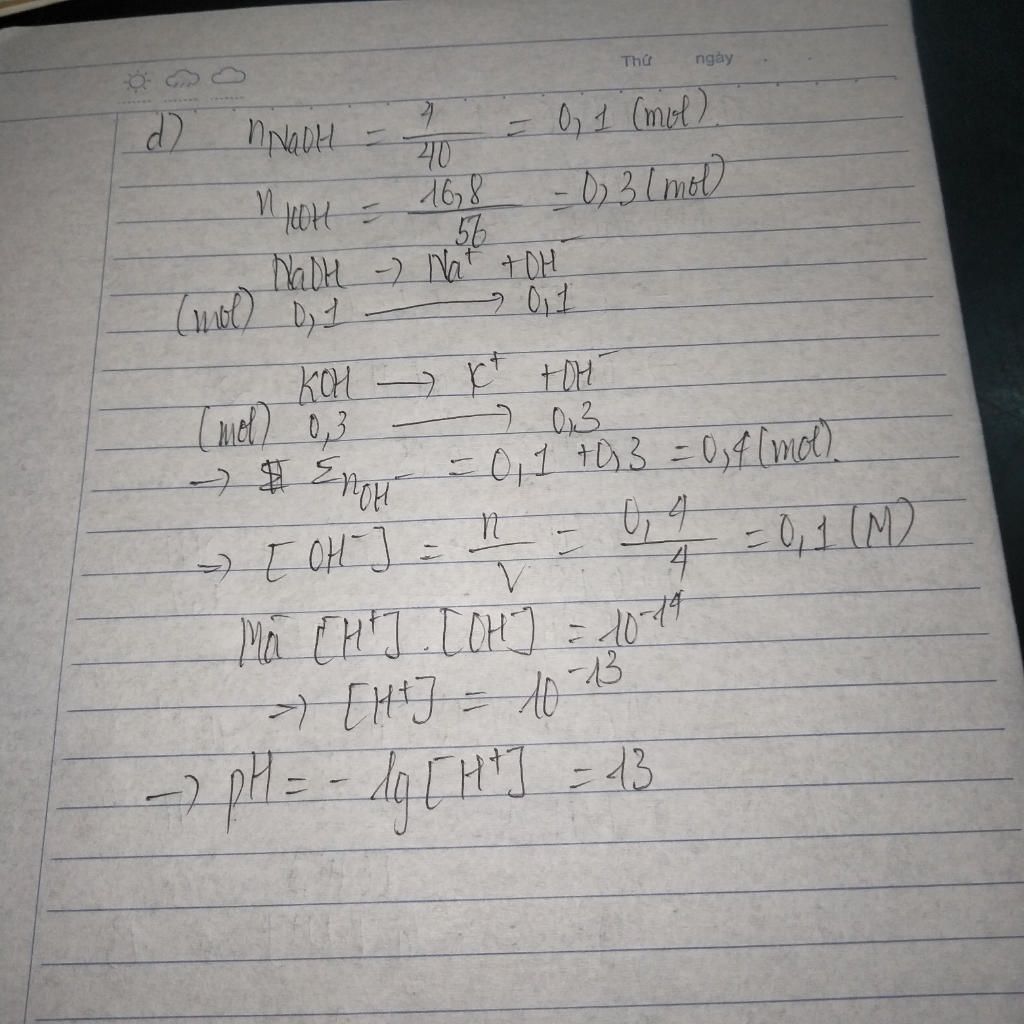 Thứ ngày
d) nNaOH = 4/40 = 0,1 (mol).
nKOH = 16,8/56 = 0,3 (mol)
NaOH → Na⁺ + OH⁻
(mol) 0,1 → 0,1
KOH → K⁺ + OH⁻
(mol) 0,3 → 0,3
→ ΣnOH⁻ = 0,1 + 0,3 = 0,4 (mol).
⇒ [OH⁻] = n/V = 0,4/4 = 0,1 (M)
Mà [H⁺].[OH⁻] = 10⁻¹⁴
⇒ [H⁺] = 10⁻¹³
→ pH = - lg[H⁺] = 13